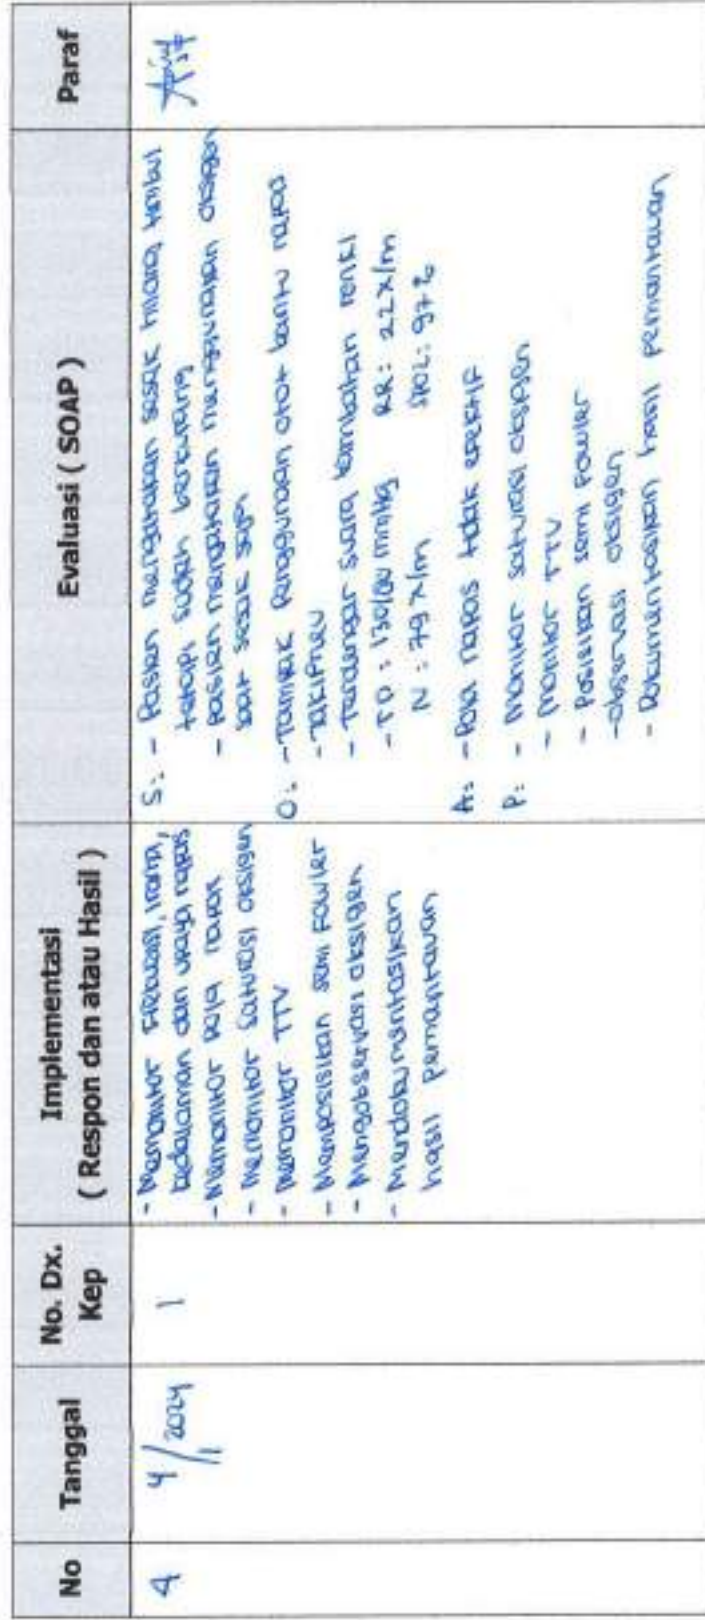 No
Tanggal
No. Dx.
Kep
Implementasi
( Respon dan atau Hasil )
Evaluasi ( SOAP )
Paraf
4
4/1 2024
1
- Memonitor frekuensi, irama,
kedalaman dan upaya napas
- Memonitor pola napas
- Memonitor saturasi oksigen
- Memonitor TTV
- Memposisikan semi Fowler
- Mengobservasi oksigen
- Mendokumentasikan
hasil pemantauan
S: - Pasien mengatakan sesak hilang timbul
tetapi sudah berkurang
- Pasien mengatakan menggunakan oksigen
saat sesak saja
O: - Tampak penggunaan otot bantu napas
- Takipneu
- Terdengar suara tambahan ronki
- TD : 130/80 mmHg RR: 22x/m
N : 79 x/m SPO2: 97%
A: - Pola napas tidak efektif
P: - Monitor saturasi oksigen
- Monitor TTV
- Posisikan semi Fowler
- observasi oksigen
- Dokumentasikan hasil pemantauan